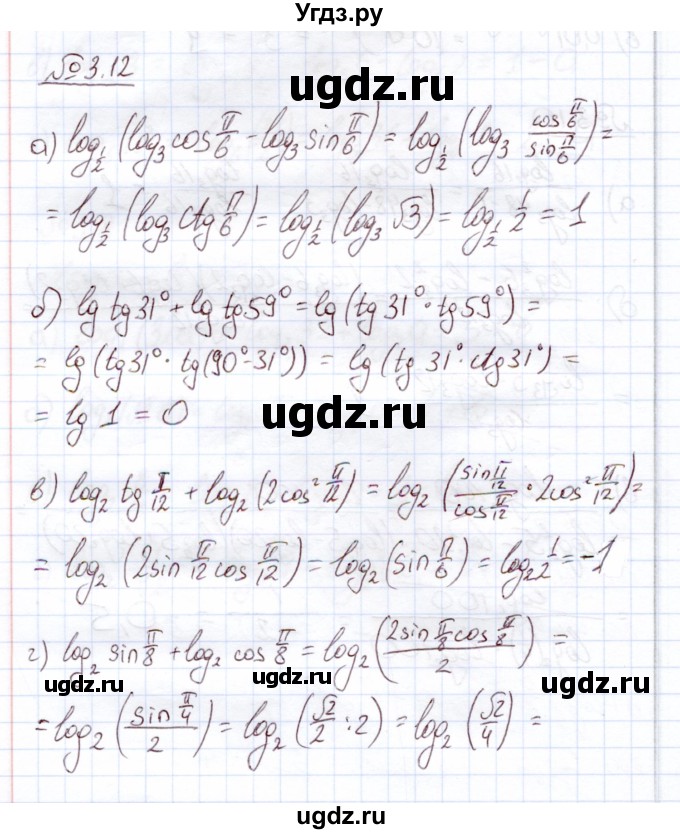 Угдз.ру
№3.12
ugdz.ru
а) log_{1/2} (log_3 cos π/6 - log_3 sin π/6) = log_{1/2} (log_3 (cos π/6)/(sin π/6)) =
= log_{1/2} (log_3 ctg π/6) = log_{1/2} (log_3 √3) = log_{1/2} 1/2 = 1
ugdz.ru
б) lg tg 31° + lg tg 59° = lg (tg 31° · tg 59°) =
= lg (tg 31° · tg (90° - 31°)) = lg (tg 31° · ctg 31°) =
= lg 1 = 0
ugdz.ru
в) log_2 tg π/12 + log_2 (2cos² π/12) = log_2 ((sin π/12)/(cos π/12) · 2cos² π/12) =
= log_2 (2sin π/12 cos π/12) = log_2 (sin π/6) = log_2 1/2 = -1
ugdz.ru
г) log_2 sin π/8 + log_2 cos π/8 = log_2 ((2sin π/8 cos π/8)/2) =
ugdz.ru ugdz.ru ugdz.ru
= log_2 ((sin π/4)/2) = log_2 (√2/2 : 2) = log_2 (√2/4) =
ugdz.ru
ugdz.ru